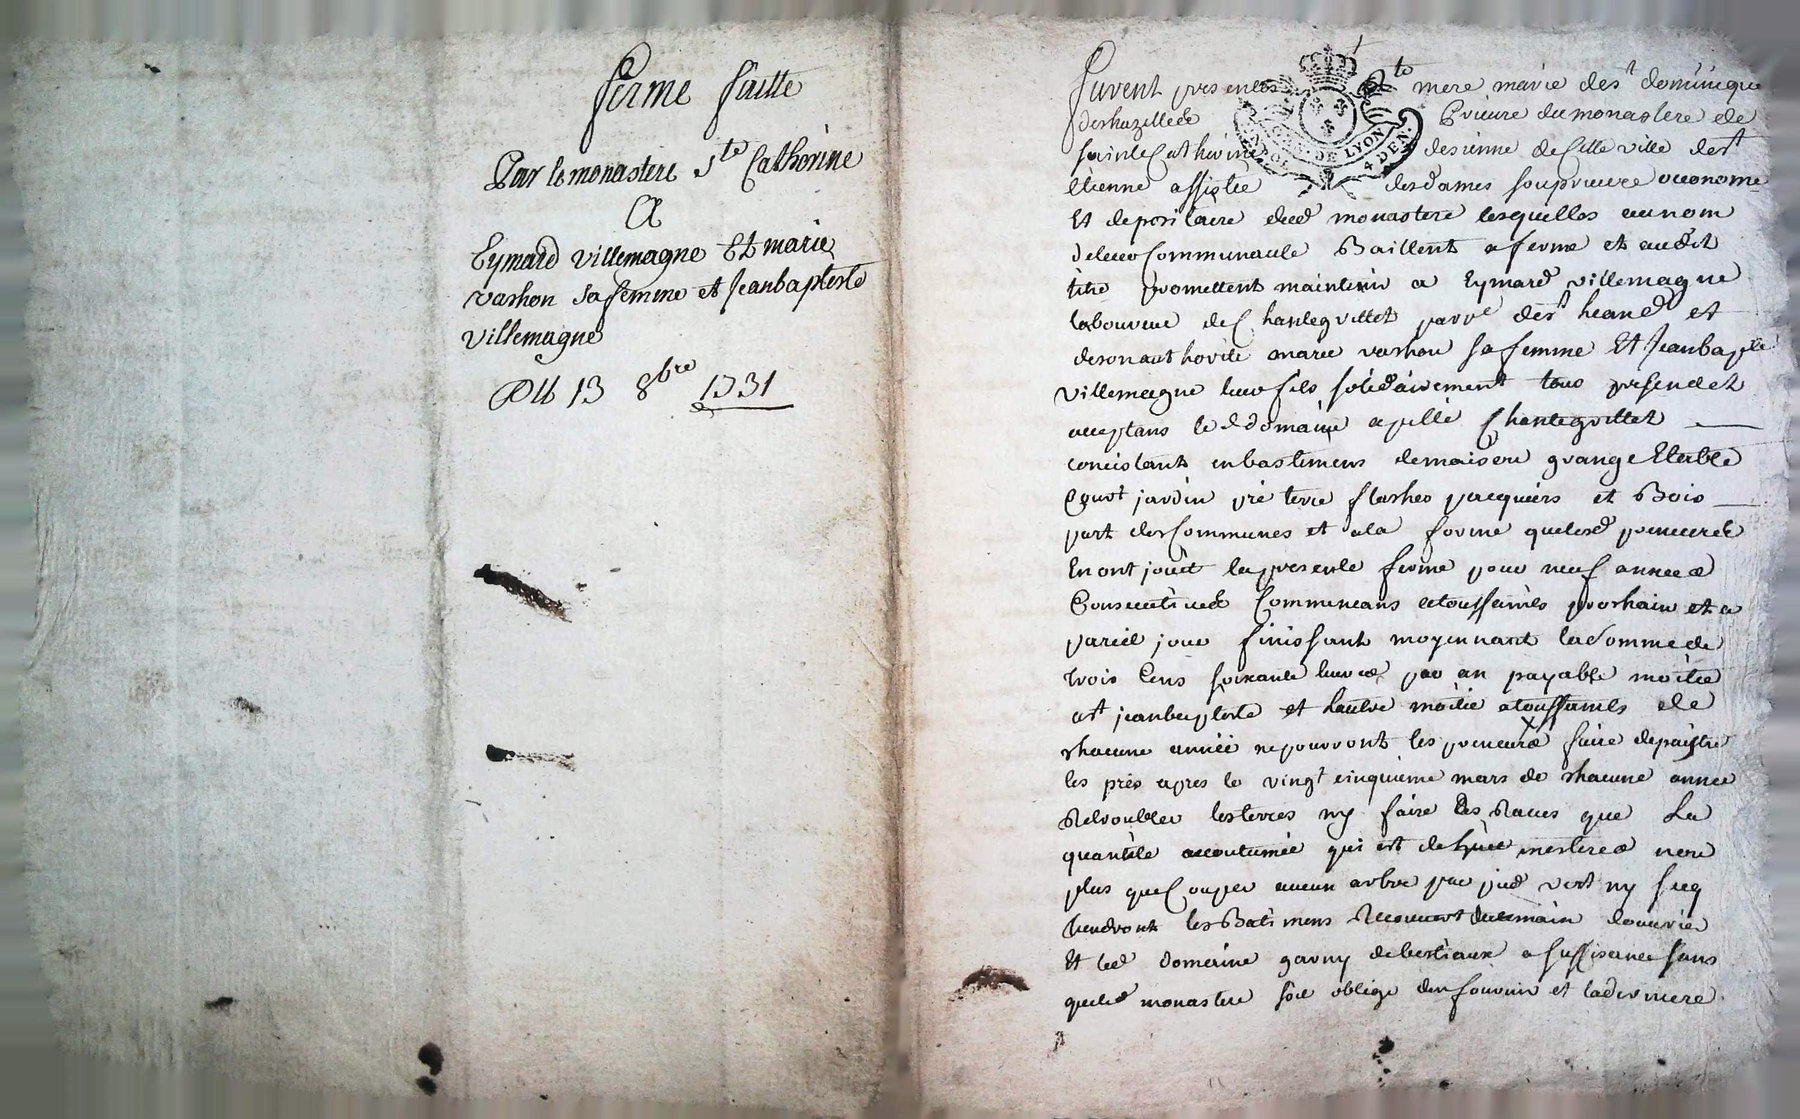 ferme faitte
Par le monastere Ste Catherine
A
Eymard villemagne Et marie
vashon sa femme et Jeanbaptiste
villemagne
Du 13 8bre 1731
furent presentes Rte mere marie de st dominique
deshazillede Prieure du monastere de
sainte Catherine desienne de Cette ville de st
Etienne assistée des dames souprieure oeconome
Et depositaire dud monastere lesquelles au nom
de leur Communauté Baillent a ferme et audit
titre promettent maintenir a Eymard villemagne
laboureur de Chantegrillet parre de st heand et
de son authorité marie vashon sa femme Et Jeanbapte
villemagne leur fils solidairement tous presend et
acceptans le d domaine apellé Chantegrillet
concistant en bastimens de maison grange Etable
Court jardin pré terre flashes pacquiers et Bois
part des Communes et a la forme que lesd preneurs
En ont jouit la presente ferme pour neuf années
Consecutives Commencans a toussaints prochain et a
pareil jour finissant moyennant la somme de
trois Cens soixante livres par an payable moitié
a st jeanbaptiste et l'autre moitié a toussaints de
chacune année ne pourront les preneurs faire depaistre
les prés apres le vingt cinquieme mars de chacune année
Retroubler les terres ny faire des Raues que La
quantité accoutumée qui est de huit mesteres non
plus que Couper aucun arbre par pied vert ny secq
tiendront les Batimens Recouvert de main d'ouvrier
Et led domaine garny de bestiaux a suffisance sans
que led monastere soit obligé d'en fournir et la derniere
GEN. DE LYON
4 DEN.